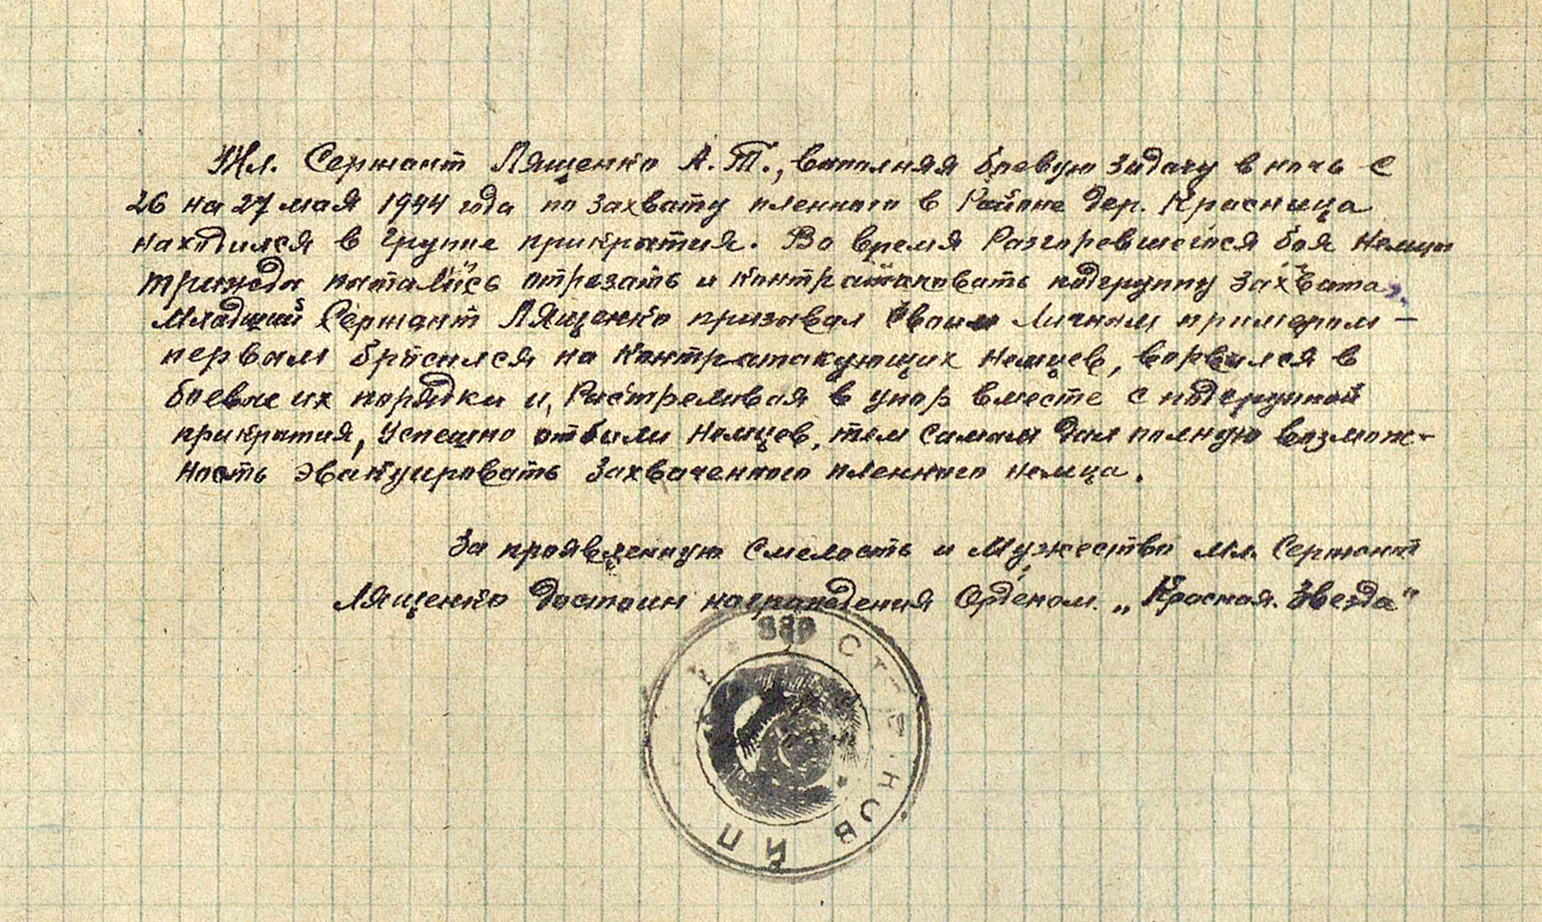 Мл. Сержант Лященко А. Т., выполняя боевую задачу в ночь с
26 на 27 мая 1944 года по захвату пленного в Районе дер. Красница
находился в группе прикрытия. Во время Разгоревшегося боя немцы
трижды пытались отрезать и контратаковать подгруппу захвата.
Младший Сержант Лященко призывал своим личным примером –
первым бросился на контратакующих немцев, ворвался в
боевые их порядки и, Растреливая в упор вместе с подгруппой
прикрытия, успешно отбили немцев, тем самым дал полную возмож-
ность эвакуировать захваченного пленного немца.
За проявленную смелость и мужество мл. Сержант
Лященко достоин награждения Орденом „Красная Звезда“